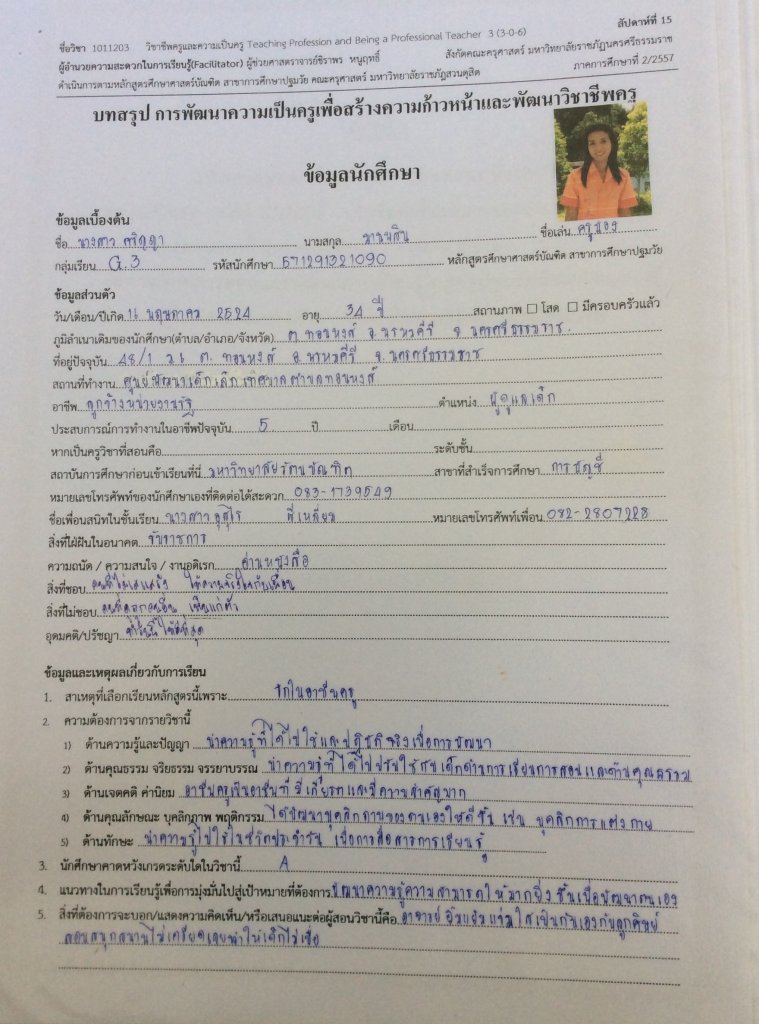 สัปดาห์ที่ 15
ชื่อวิชา 1011203 วิชาชีพครูและความเป็นครู Teaching Profession and Being a Professional Teacher 3 (3-0-6)
ผู้อำนวยความสะดวกในการเรียนรู้(Facilitator) ผู้ช่วยศาสตราจารย์ชิราพร หนูฤทธิ์ สังกัดคณะครุศาสตร์ มหาวิทยาลัยราชภัฏนครศรีธรรมราช
ดำเนินการตามหลักสูตรศึกษาศาสตร์บัณฑิต สาขาการศึกษาปฐมวัย คณะครุศาสตร์ มหาวิทยาลัยราชภัฏสวนดุสิต ภาคการศึกษาที่ 2/2557
บทสรุป การพัฒนาความเป็นครูเพื่อสร้างความก้าวหน้าและพัฒนาวิชาชีพครู
ข้อมูลนักศึกษา
ข้อมูลเบื้องต้น
ชื่อ นางสาว นามสกุล ชื่อเล่น ครูน้อง
กลุ่มเรียน G.3 รหัสนักศึกษา 571291321090 หลักสูตรศึกษาศาสตร์บัณฑิต สาขาการศึกษาปฐมวัย
ข้อมูลส่วนตัว
วัน/เดือน/ปีเกิด 16 พฤษภาคม 2524 อายุ 34 ปี สถานภาพ ☐ โสด ☐ มีครอบครัวแล้ว
ภูมิลำเนาเดิมของนักศึกษา(ตำบล/อำเภอ/จังหวัด) ต.ทอนหงส์ อ.พรหมคีรี จ.นครศรีธรรมราช.
ที่อยู่ปัจจุบัน 48/1 ม.6 ต. ทอนหงส์ อ.พรหมคีรี จ.นครศรีธรรมราช
สถานที่ทำงาน ศูนย์พัฒนาเด็กเล็กเทศบาลตำบลทอนหงส์
อาชีพ ลูกจ้างหน่วยงานรัฐ ตำแหน่ง ผู้ดูแลเด็ก
ประสบการณ์การทำงานในอาชีพปัจจุบัน 5 ปี เดือน
หากเป็นครูวิชาที่สอนคือ ระดับชั้น
สถาบันการศึกษาก่อนเข้าเรียนที่นี่ มหาวิทยาลัยรัตนบัณฑิต สาขาที่สำเร็จการศึกษา การบัญชี
หมายเลขโทรศัพท์ของนักศึกษาเองที่ติดต่อได้สะดวก 083-1739549
ชื่อเพื่อนสนิทในชั้นเรียน นางสาว สีเหลือม หมายเลขโทรศัพท์เพื่อน 082-2807228
สิ่งที่ใฝ่ฝันในอนาคต รับราชการ
ความถนัด / ความสนใจ / งานอดิเรก อ่านหนังสือ
สิ่งที่ชอบ คนที่ไม่เสแสร้ง ให้ความจริงใจกับเพื่อน
สิ่งที่ไม่ชอบ คนที่หลอกคนอื่น เห็นแก่ตัว
อุดมคติ/ปรัชญา ทำวันนี้ให้ดีที่สุด
ข้อมูลและเหตุผลเกี่ยวกับการเรียน
1. สาเหตุที่เลือกเรียนหลักสูตรนี้เพราะ รักในอาชีพครู
2. ความต้องการจากรายวิชานี้
1) ด้านความรู้และปัญญา นำความรู้ที่ได้ไปใช้และปฏิบัติจริงเพื่อการพัฒนา
2) ด้านคุณธรรม จริยธรรม จรรยาบรรณ นำความรู้ที่ได้ไปปรับใช้กับเด็กด้านการเรียนการสอนและด้านคุณธรรม
3) ด้านเจตคติ ค่านิยม อาชีพครูเป็นอาชีพที่มีเกียรติและมีความสำคัญมาก
4) ด้านคุณลักษณะ บุคลิกภาพ พฤติกรรม ได้พัฒนาบุคลิกภาพของตนเองให้ดีขึ้น เช่น บุคลิกการแต่งกาย
5) ด้านทักษะ นำความรู้ไปใช้ในชีวิตประจำวัน เพื่อการสื่อสารการเรียนรู้
3. นักศึกษาคาดหวังเกรดระดับใดในวิชานี้ A
4. แนวทางในการเรียนรู้เพื่อการมุ่งมั่นไปสู่เป้าหมายที่ต้องการ พัฒนาความรู้ความสามารถให้มากยิ่งขึ้นเพื่อพัฒนาตนเอง
5. สิ่งที่ต้องการจะบอก/แสดงความคิดเห็น/หรือเสนอแนะต่อผู้สอนวิชานี้คือ อาจารย์ยิ้มแย้มแจ่มใสเป็นกันเองกับลูกศิษย์
สอนสนุกสนานไม่เครียดเลยทำให้เด็กไม่เบื่อ